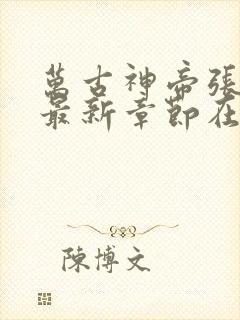 萬古神帝張
最新章節在
陳博文